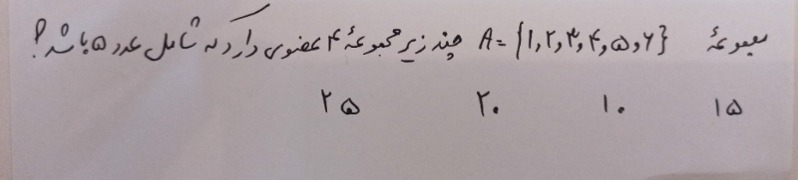 مجموعهٔ A = {۱,۲,۳,۴,۵,۶} چند زیرمجموعهٔ ۴ عضوی دارد که شامل عدد ۵ باشد؟
۱۵ ۱۰ ۲۰ ۲۵